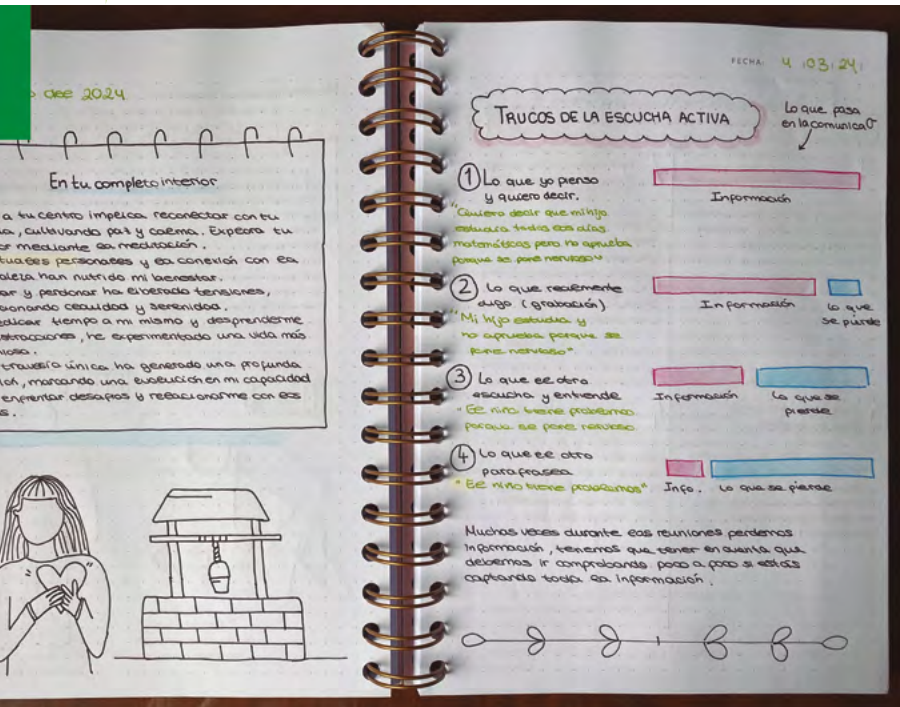 de 2024
En tu completo interior
a tu centro implica reconectar con tu
a, cultivando paz y calma. Explora tu
or mediante la meditación.
tuales personales y la conexión con la
aleza han nutrido mi bienestar.
ar y perdonar ha liberado tensiones,
ionando claridad y serenidad.
edicar tiempo a mi mismo y desprenderme
stracciones, he experimentado una vida más
iosa.
travesía única ha generado una profunda
ión, marcando una evolución en mi capacidad
enfrentar desafíos y relacionarme con los
s.
FECHA: 4 03 24
TRUCOS DE LA ESCUCHA ACTIVA
Lo que pasa
en la comunica
1 Lo que yo pienso
y quiero decir.
"Quiero decir que mi hijo
estudia todos los días
matemáticas pero no aprueba
porque se pone nervioso"
Información
2 Lo que realmente
digo (grabación)
"Mi hijo estudia y
no aprueba porque se
pone nervioso"
Información
Lo que
se pierde
3 Lo que el otro
escucha y entiende
"El niño tiene problemas
porque se pone nervioso
Información
Lo que se
pierde
4 Lo que el otro
parafrasea
"El niño tiene problemas"
Info.
Lo que se pierde
Muchas veces durante las reuniones perdemos
información, tenemos que tener en cuenta que
debemos ir comprobando poco a poco si estáis
captando toda la información.